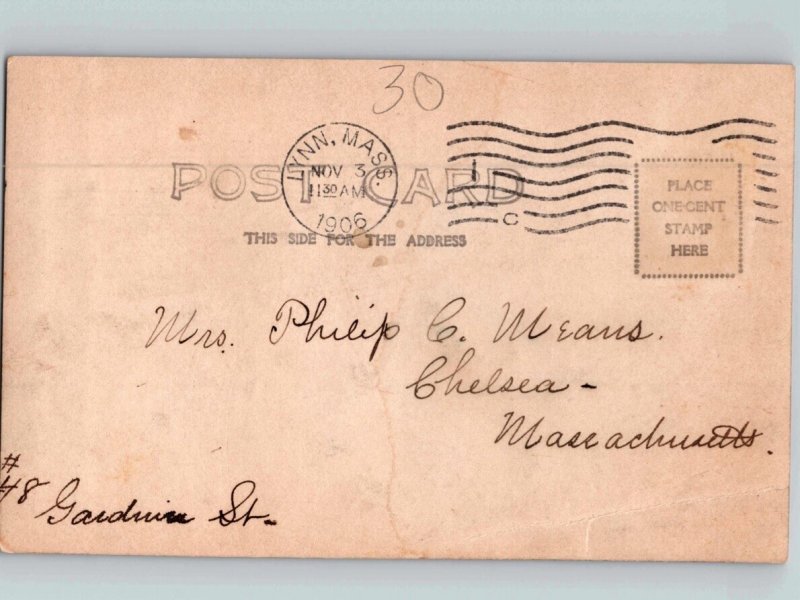 30
LYNN, MASS.
NOV 3
11 30 AM
1906
C
POST CARD
THIS SIDE FOR THE ADDRESS
PLACE
ONE-CENT
STAMP
HERE
Mrs. Philip C. Means.
Chelsea -
Massachusetts.
#
48 Gardner St.